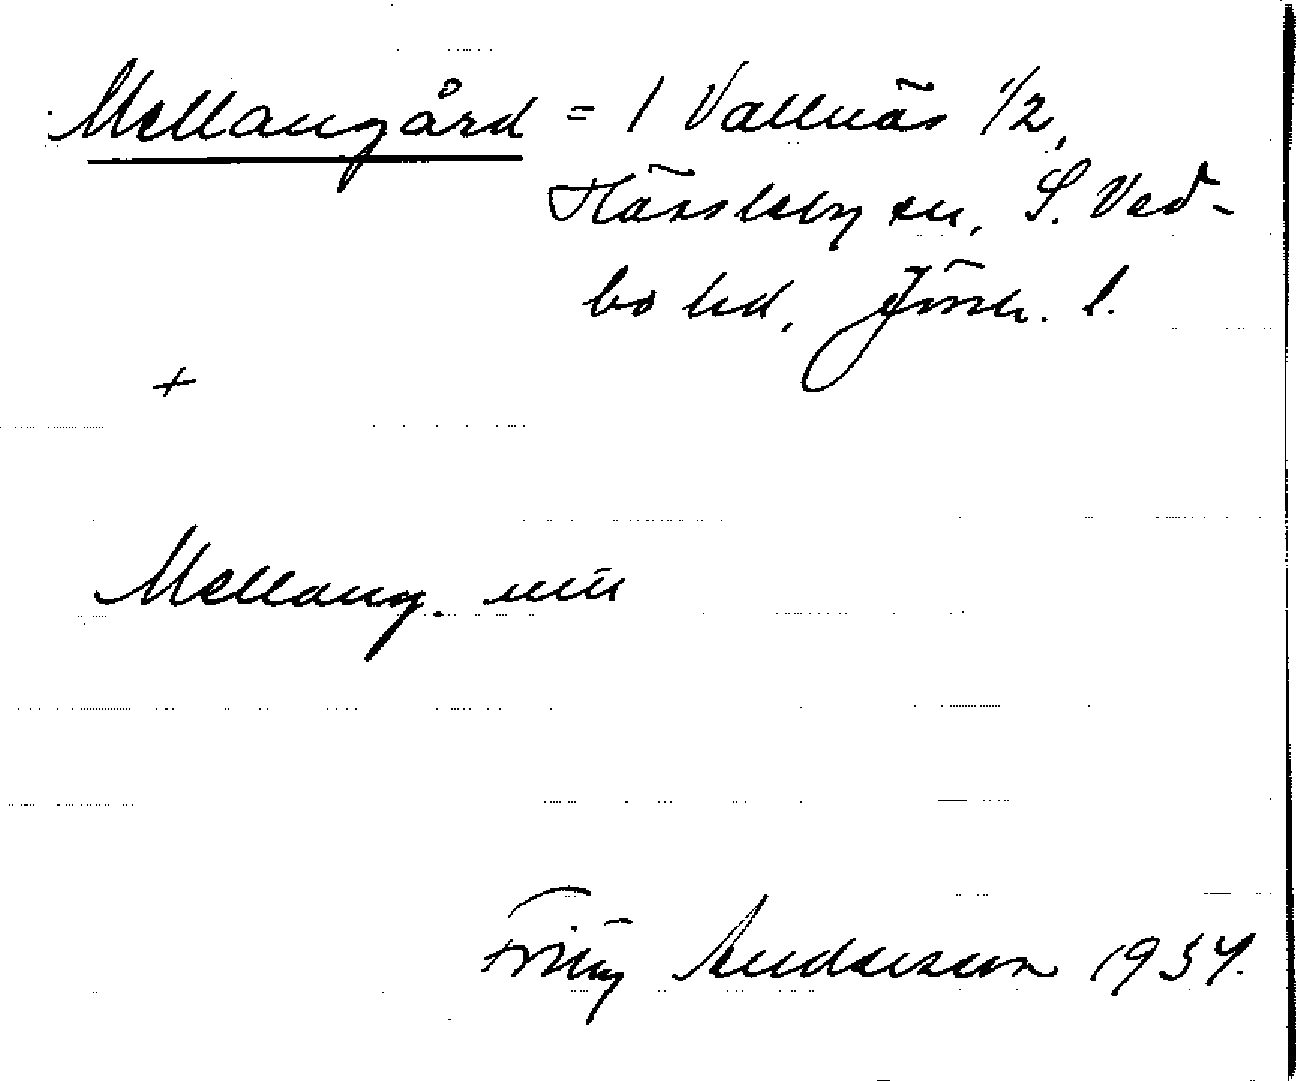 Mellangård = 1 Vallnäs 1/2,
Hässleby sn, S. Ved-
bo hd, Jönk. l.
+
Mellang.
Anderson 1934.